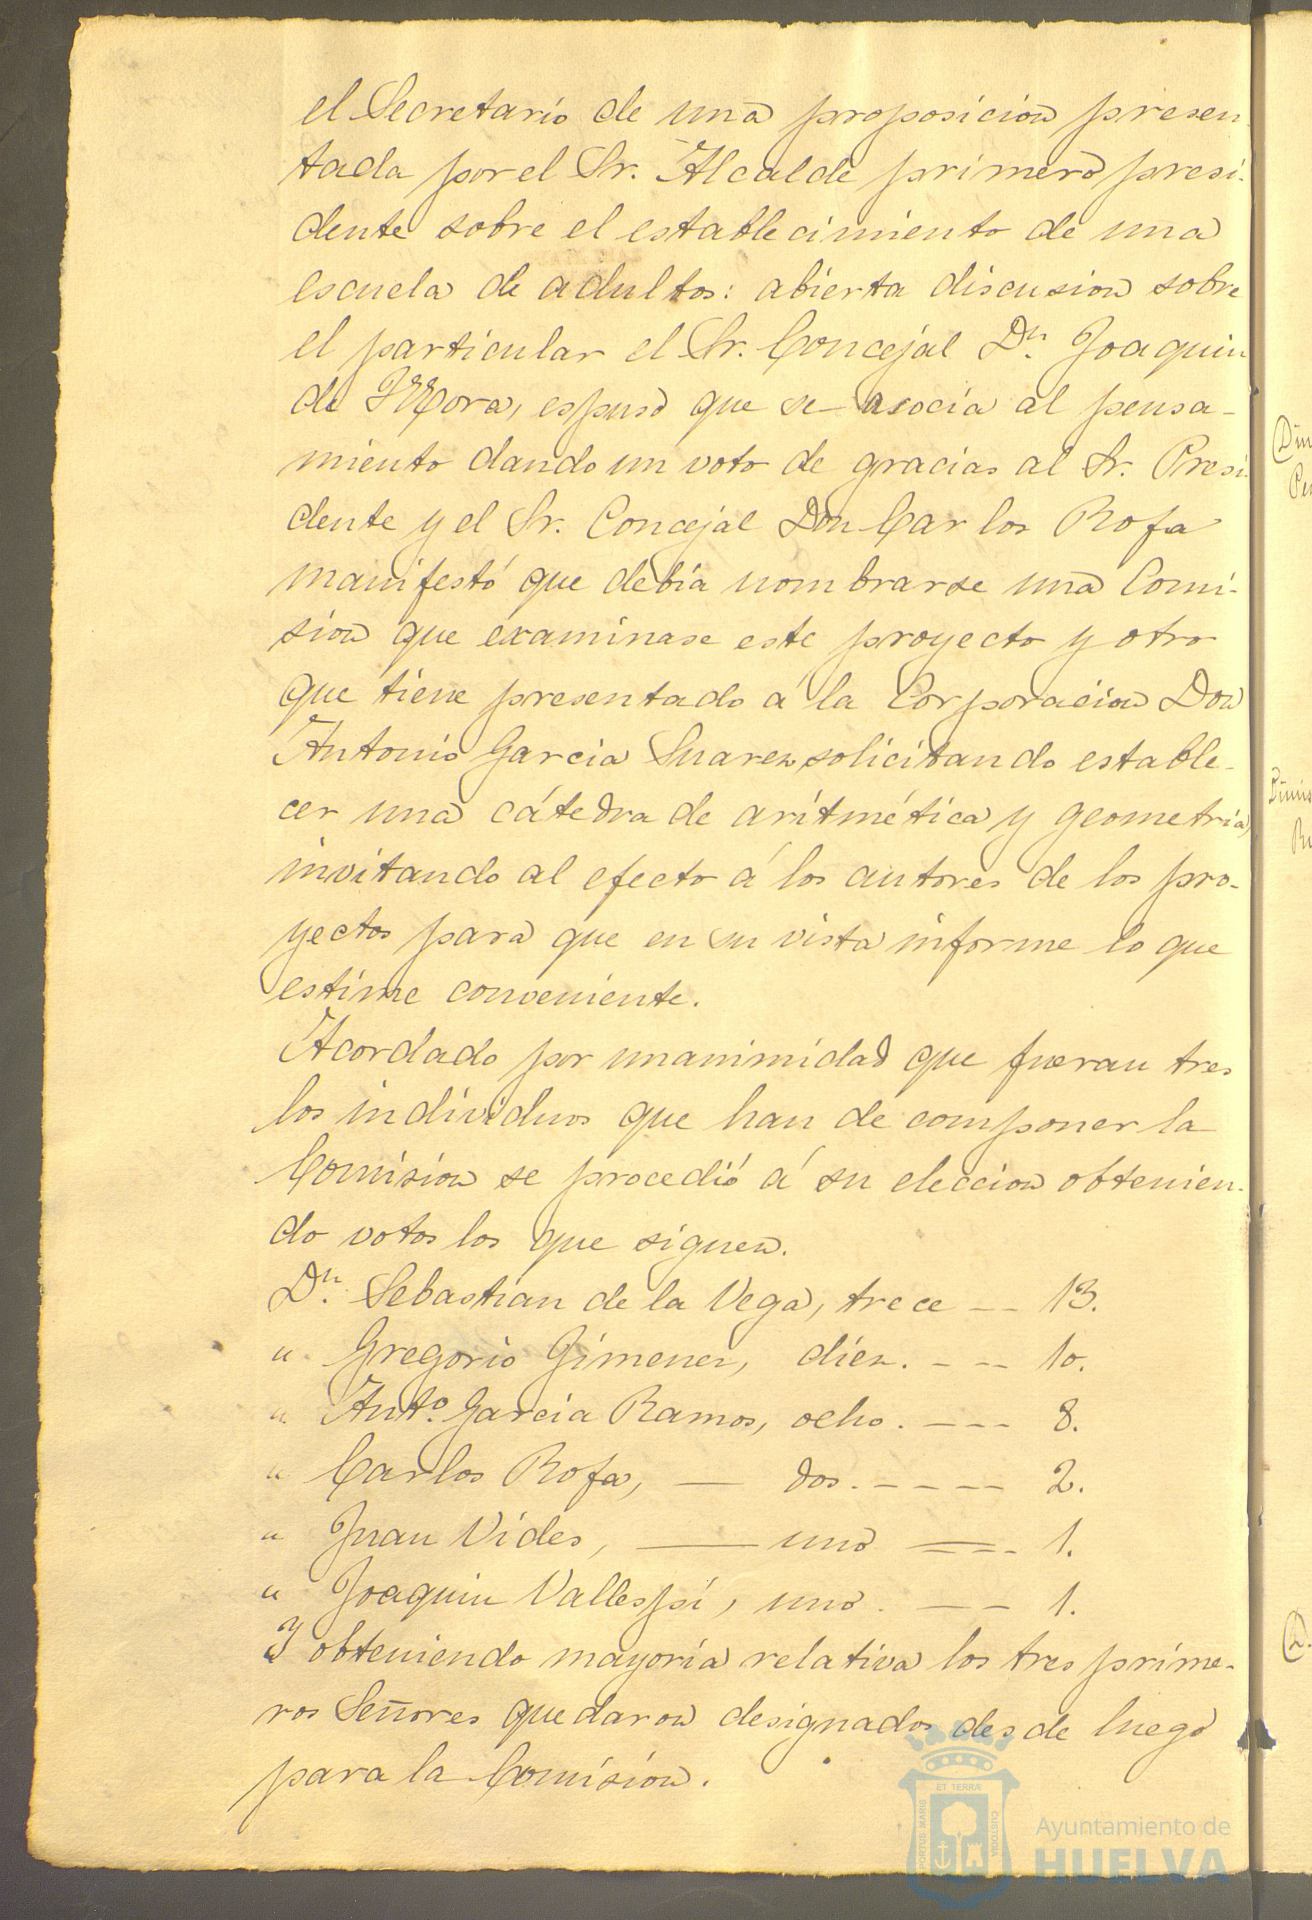 el Secretario de una proposicion presen
tada por el Sr. Alcalde primero presi-
dente sobre el establecimiento de una
escuela de adultos: abierta discusion sobre
el particular el Sr. Concejal Dn. Joaquin
de Mora, espuso que se asocia al pensa-
miento dando un voto de gracias al Sr. Presi-
dente y el Sr. Concejal Don Carlos Rofa
manifestó que debia nombrarse una Comi-
sion que examinase este proyecto y otro
que tiene presentado á la Corporacion Don
Antonio Garcia Suarez solicitando estable-
cer una cátedra de aritmética y geometria
invitando al efecto á los autores de los pro-
yectos para que en su vista informe lo que
estime conveniente.
Acordado por unanimidad que fueran tres
los individuos que han de componer la
Comision se procedió á su eleccion obtenien-
do votos los que siguen.
Dn. Sebastian de la Vega, trece -- 13.
" Gregorio Gimenez, diez. --- 10.
" Anto. Garcia Ramos, ocho. --- 8.
" Carlos Rofa, — dos. ----- 2.
" Juan Vides, — uno --- 1.
" Joaquin Vallespi, uno. -- 1.
Y obteniendo mayoria relativa los tres prime-
ros Señores quedaron designados desde luego
para la Comision.
PORTUS MARIS ET TERRÆ CUSTODIA
Ayuntamiento de
HUELVA